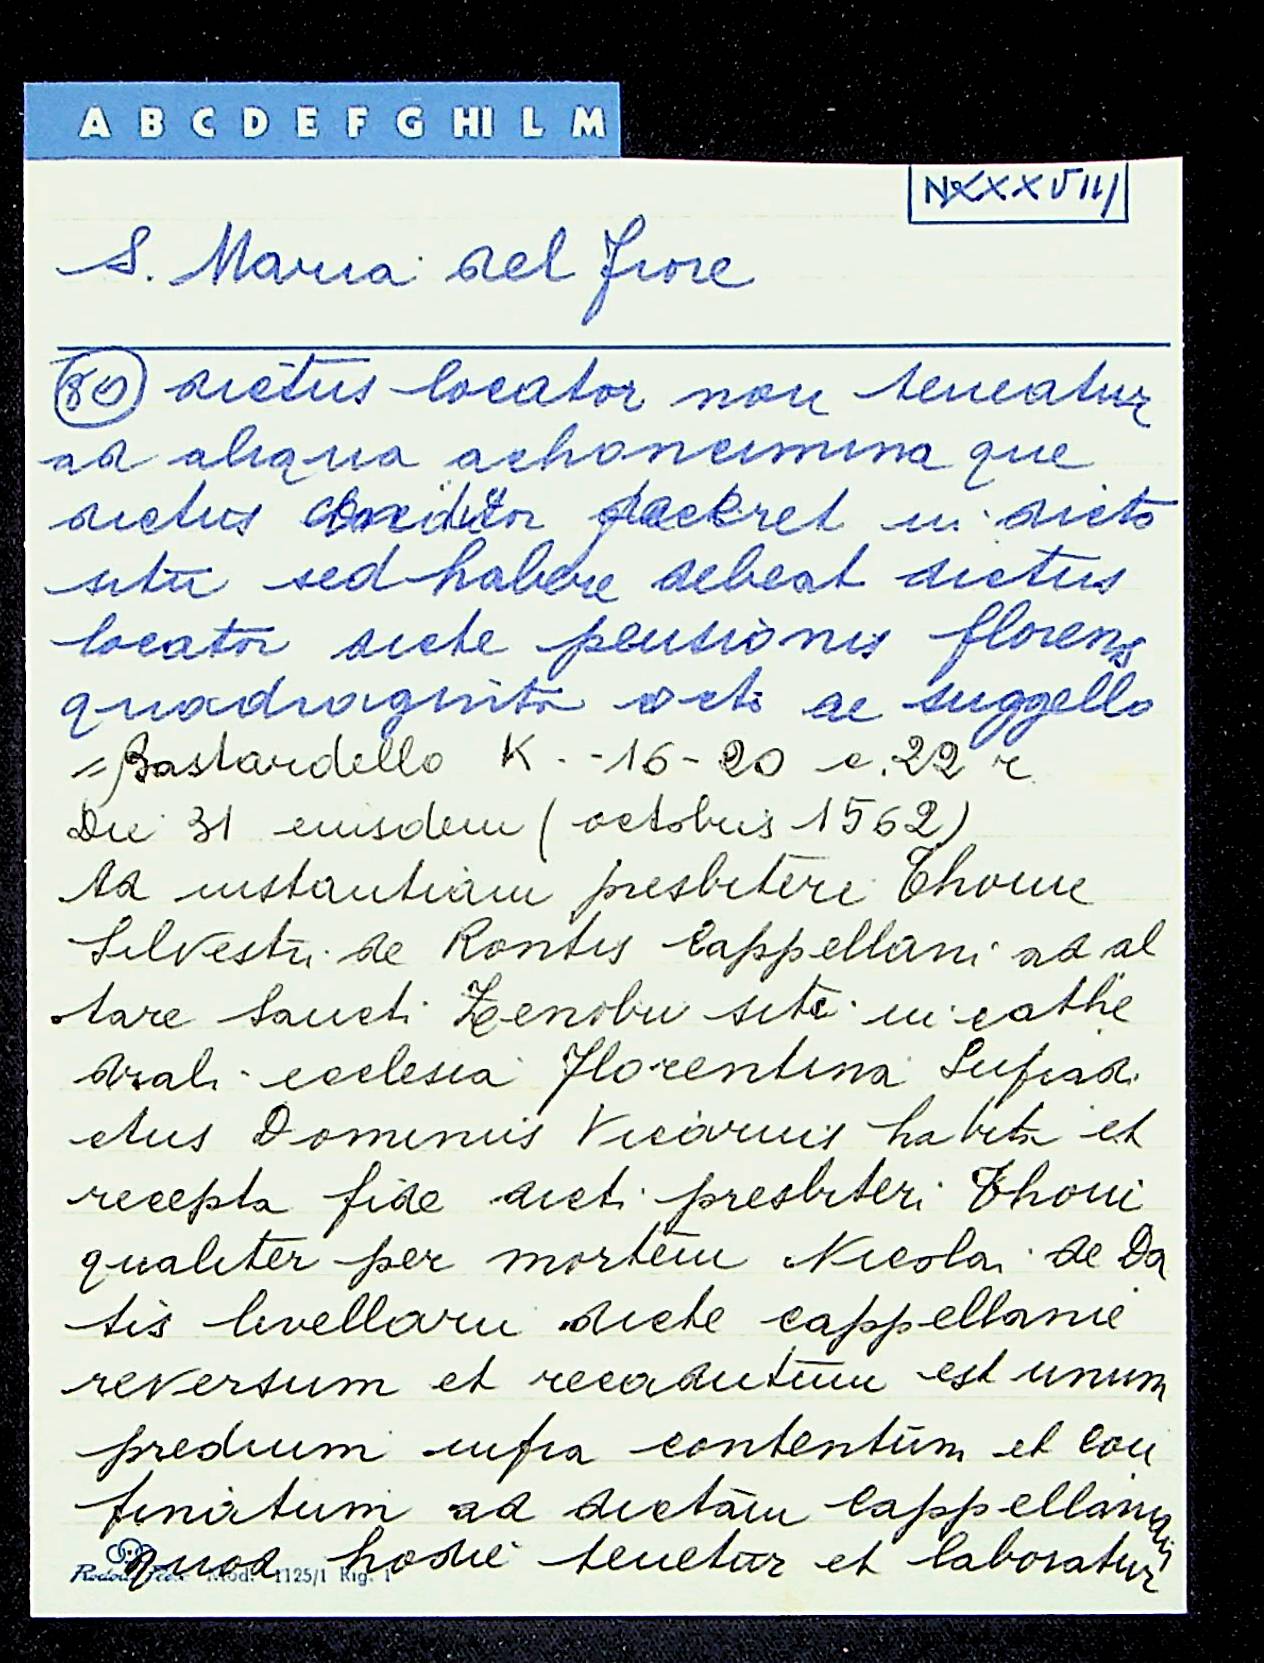 A B C D E F G HI L M
N XXXVIII
S. Maria del Fiore
80 dictus locator non teneatur
ad aliqua achoncimina que
dictus conductor faceret in dicto
situ sed habere debeat dictus
locator dicte pensionis florens
quadraginta octo ac suggello
= Bastardello K. - 16 - 20 c. 22 r
Die 31 eiusdem (octobris 1562)
Ad instantiam presbiteri Thome
Silvestri de Rontis Cappellani ad al
tare Sancti Zenobii siti in cathe
drali ecclesia Florentina Suprad
ctus Dominus Vicarius habita et
recepta fide dicti presbiteri Thomi
qualiter per mortem Nicolai de Da
tis livellarii dicte cappellanie
reversum et recadutum est unum
predium infra contentum et con
finatum ad dictam Cappellaniam
quod hodie tenetur et laboratur
Mod. 1125/1 Rig. 1